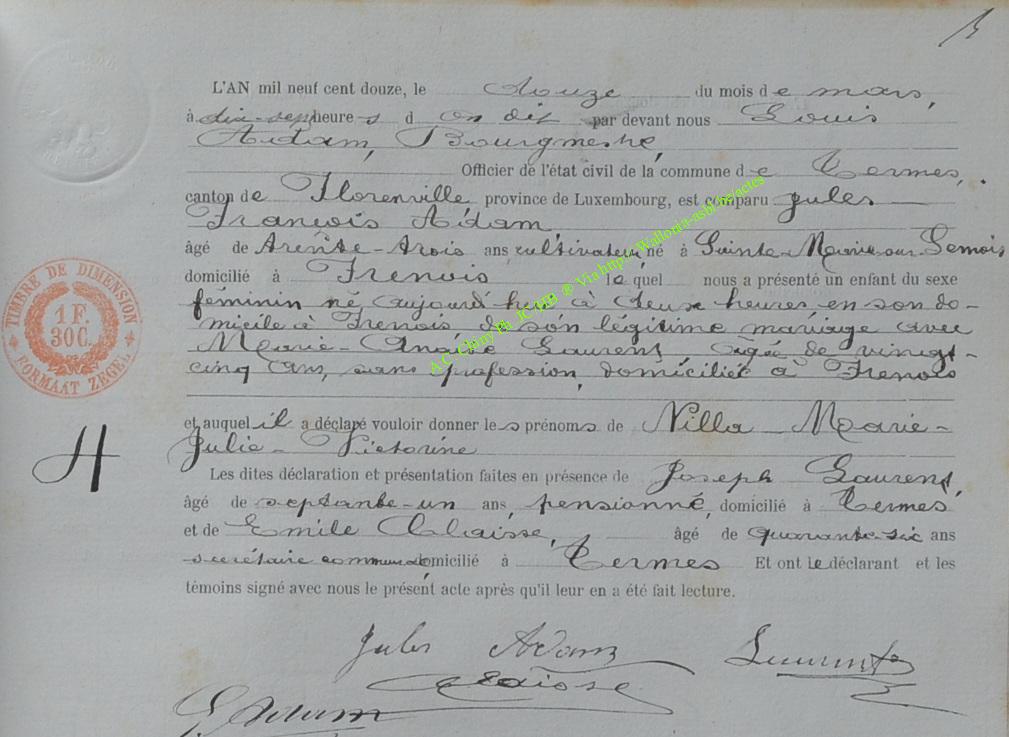 L'AN mil neuf cent douze, le douze du mois de mars,
à dix-sept heures d on dit par devant nous Louis
Adam, Bourgmestre,
Officier de l'état civil de la commune de Termes,
canton de Florenville, province de Luxembourg, est comparu Jules
François Adam,
âgé de trente-trois ans, cultivateur, né à Sainte-Marie-sur-Semois
domicilié à Frenois lequel nous a présenté un enfant du sexe
féminin né aujourd'hui à deux heures, en son do-
micile à Frenois, de son légitime mariage avec
Marie- Laurent, âgée de vingt-
cinq ans, sans profession, domiciliée à Frenois
et auquel il a déclaré vouloir donner les prénoms de Nilla Marie-
Julie- Victorine
Les dites déclaration et présentation faites en présence de Joseph Laurent,
âgé de septante-un ans, pensionné, domicilié à Termes
et de Emile Claisse, âgé de quarante-six ans
secrétaire communal domicilié à Termes Et ont le déclarant et les
témoins signé avec nous le présent acte après qu'il leur en a été fait lecture.
Jules Adam Laurent
Claisse
L. Adam
TIMBRE DE DIMENSION
1 F.
30C.
FORMAAT ZEGEL
H
A.G. Chiny Ph. JC via ® Via http://Wallonia-asbl.be/actes